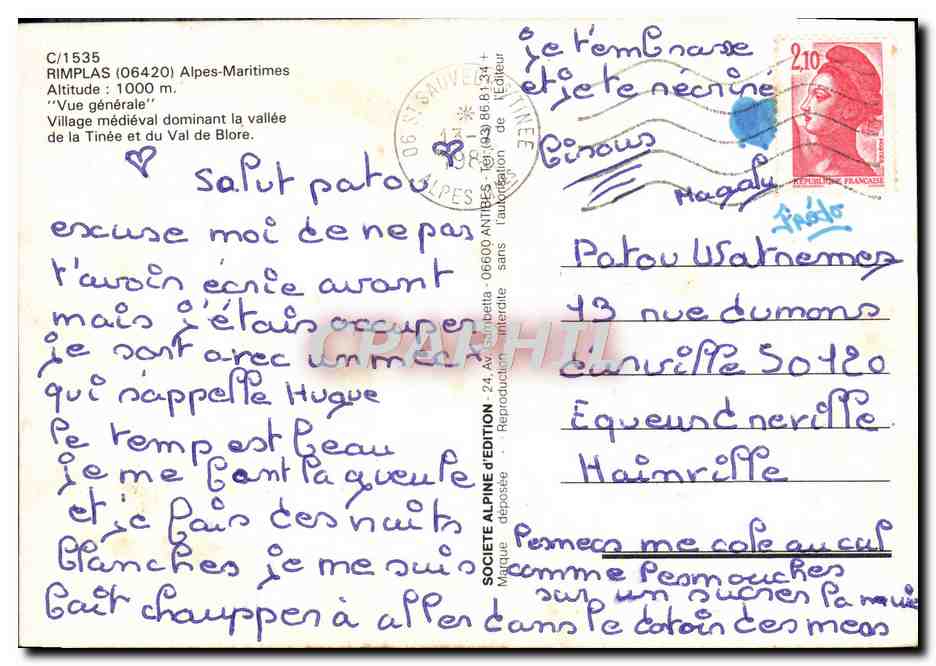 C/1535
RIMPLAS (06420) Alpes-Maritimes
Altitude : 1000 m.
"Vue générale"
Village médiéval dominant la vallée
de la Tinée et du Val de Blore.
Salut patou
excuse moi de ne pas
t'avoir écrie avant
mais j'étais occuper
je sort avec un mec
qui s'appelle Hugue
le temp est beau
je me bant la gueule
et je fais des nuits
blanches je me suis
fait chaupper à aller dans le dotoir des mecs
les mecs me cole au cul
comme les mouches
sur un sucres la nuit
je t'embrasse
et je te récrire
Bisous
Magaly
Frédo
SOCIETE ALPINE d'EDITION - 24, Av. Gambetta - 06600 ANTIBES - Tél. (93) 86.81.34 +
Marque déposée - Reproduction interdite sans l'autorisation de l'Editeur
06 ST SAUVEUR S/TINEE
ALPES MMES
2,10
REPUBLIQUE FRANÇAISE
Patou Watremez
13 rue dumons
dunville 50120
Equeurdreville
Hainville
CPAPHIL